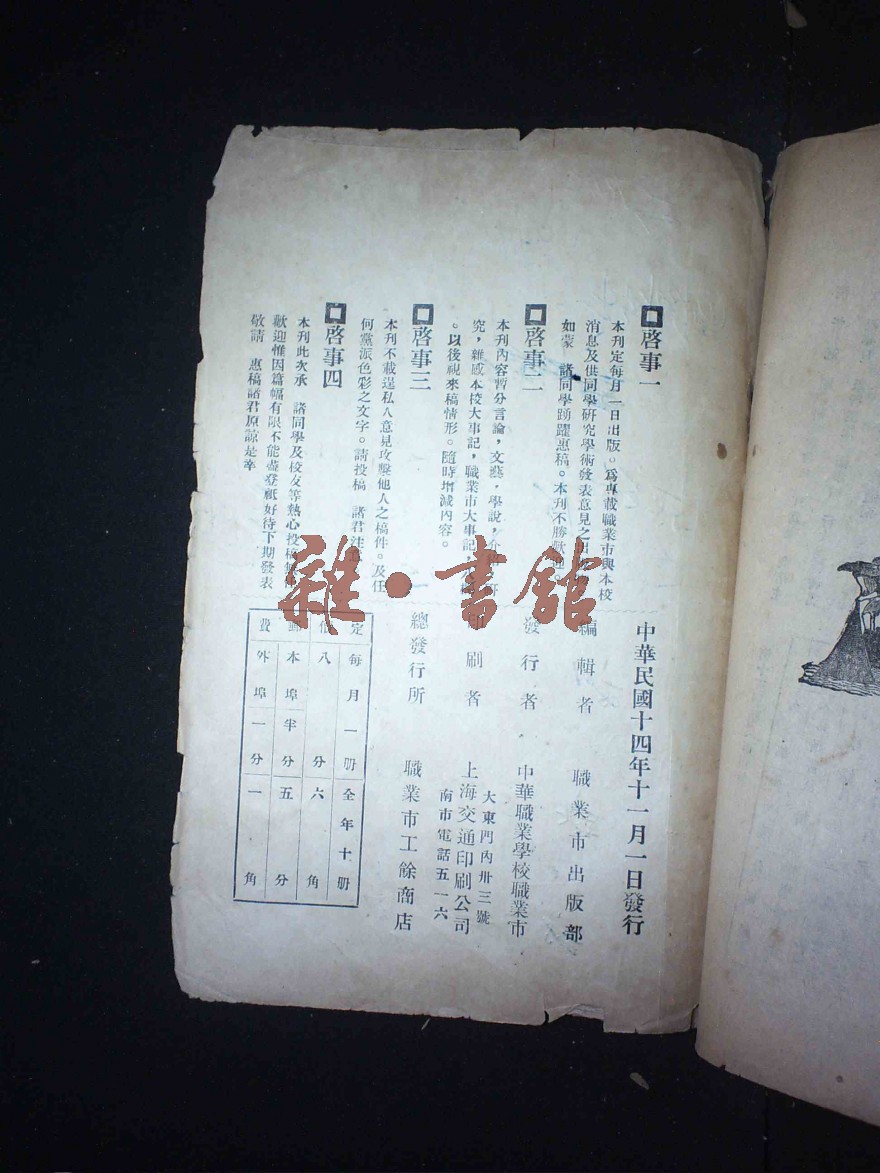 啓事一
本刊定每月一日出版。爲專載職業市與本校
消息及供同學研究學術發表意見之
如蒙 諸同學踴躍惠稿。本刊不勝歡迎。
啓事二
本刊內容暫分言論，文藝，學說，介紹，研
究，雜感本校大事記，職業市大事記，
。以後視來稿情形。隨時增減內容。
啓事三
本刊不載逞私人意見攻擊他人之稿件。及任
何黨派色彩之文字。請投稿 諸君注意
啓事四
本刊此次承 諸同學及校友等熱心投稿無任
歡迎惟因篇幅有限不能盡登祇好待下期發表
敬請 惠稿諸君原諒是幸
中華民國十四年十一月一日發行
編輯者 職業市出版部
發行者 中華職業學校職業市
印刷者 上海交通印刷公司
大東門內卅三號
南市電話五一六
總發行所 職業市工餘商店
定價 每月一册 八分 全年十册 六角
郵費 本埠半分 五分
外埠一分 一角
雜·書館